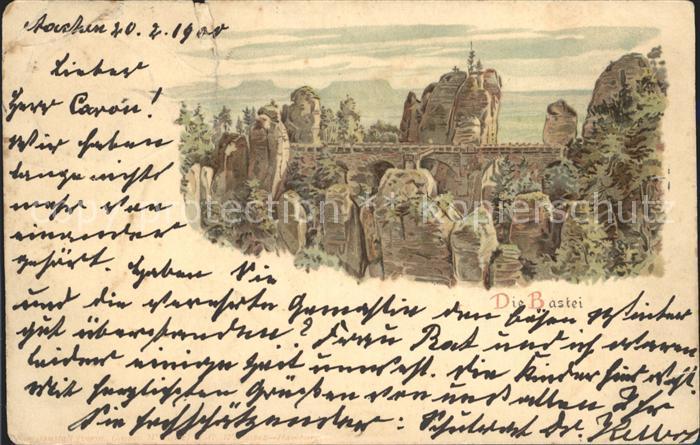 Aachen 20. 2. 1900
Lieber
Herr Caron!
Wir haben
lange nichts
mehr von
einander
gehört. Haben Sie
und die verehrte Gemahlin den bösen Winter
gut überstanden? Frau Rat und ich waren
leider einige Zeit unwohl. Die Kinder sind wohl
Mit herzlichsten Grüßen von uns allen Ihr
Sie hochschätzender: Schulrat Dr.
Die Bastei
copyright protection ** kopierschutz